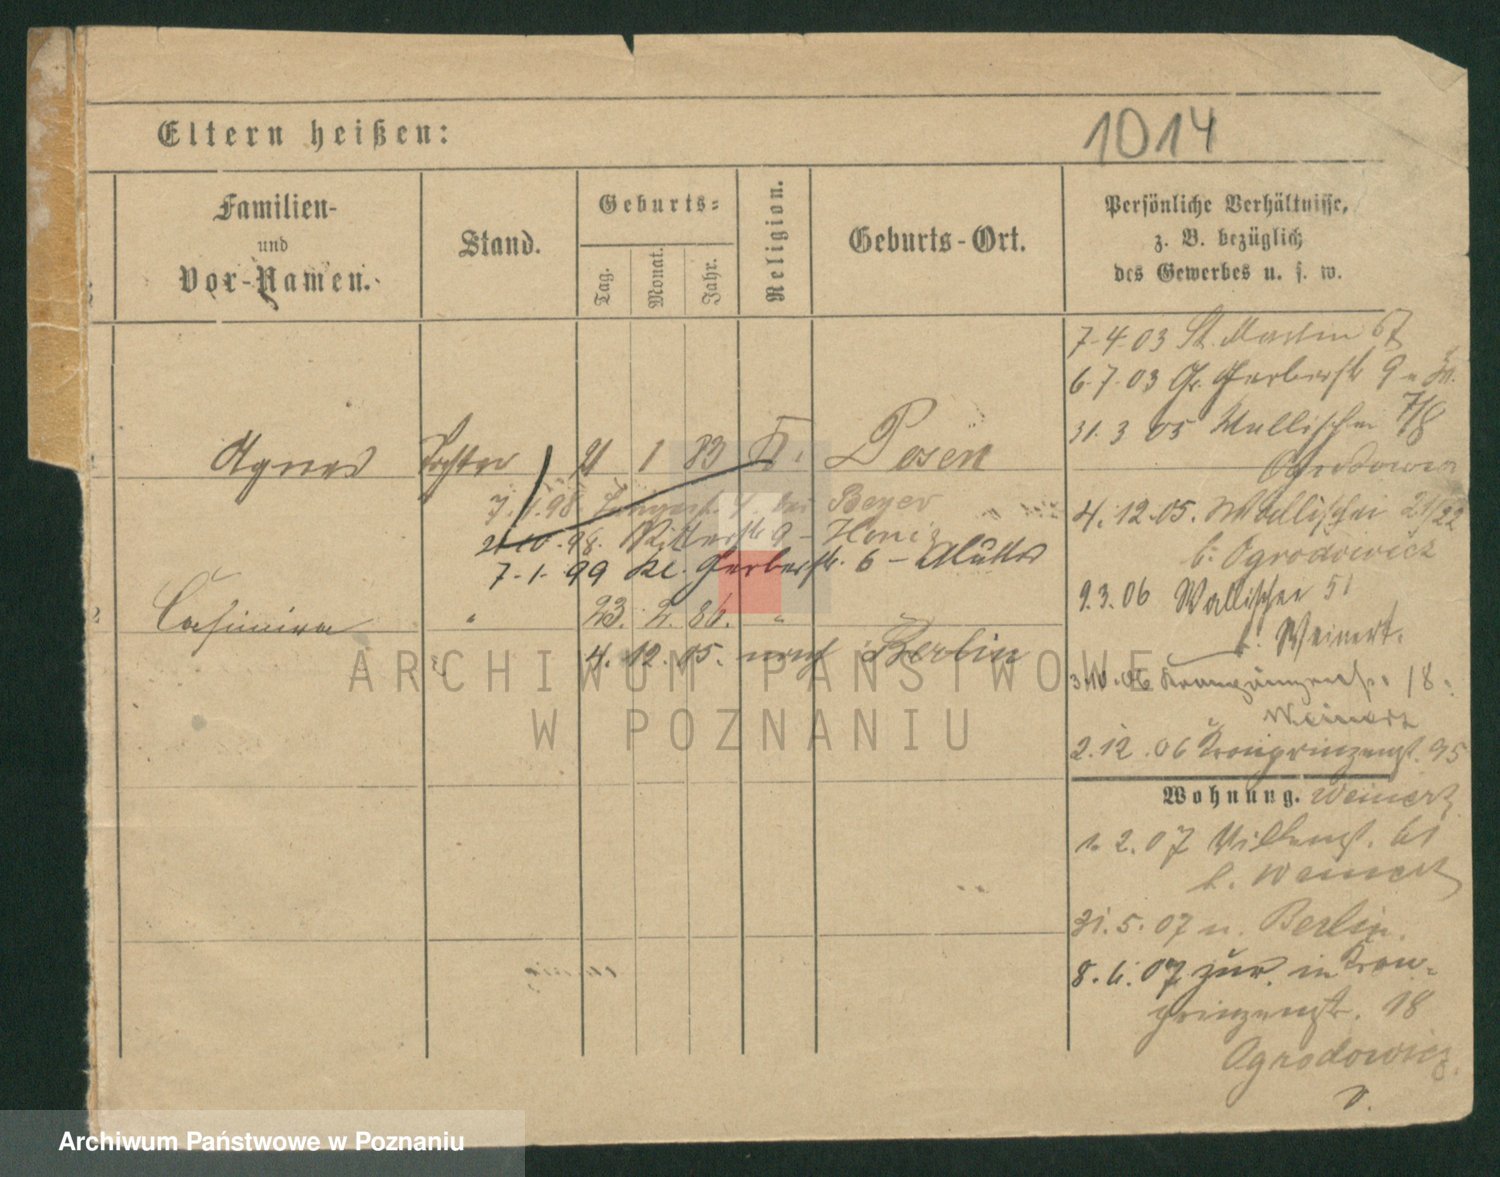 Eltern heißen:
1014
Familien-
und
Vor-Namen.
Stand.
Geburts=
Tag.
Monat.
Jahr.
Religion.
Geburts-Ort.
Persönliche Verhältnisse,
z. B. bezüglich
des Gewerbes u. s. w.
7-4-03 St. Martin 67
6.7.03 Gr. Gerberstr 9
31.3 05 Wallischei 7/8
Ogrodowicz
Agnes Tochter 21 1 83 K. Posen
4.12.05. Wallischei 21/22
b. Ogrodowicz
98. Ritterstr 9 -
7-1-99 Kl. Gerberstr. 6 - Mutter
9.3.06 Wallischei 51
b. Weinert.
Casimira " 23. 2. 86. "
4. 12. 05. nach Berlin
06 18.
Weinert
2.12.06 Kronprinzenst. 95
Wohnung. Weinert
1.2.07 61
b. Weinert
31.5.07 n. Berlin.
8.6.07 zur. in Kron-
prinzenstr. 18
Ogrodowicz
ARCHIWUM PAŃSTWOWE
W POZNANIU
Archiwum Państwowe w Poznaniu